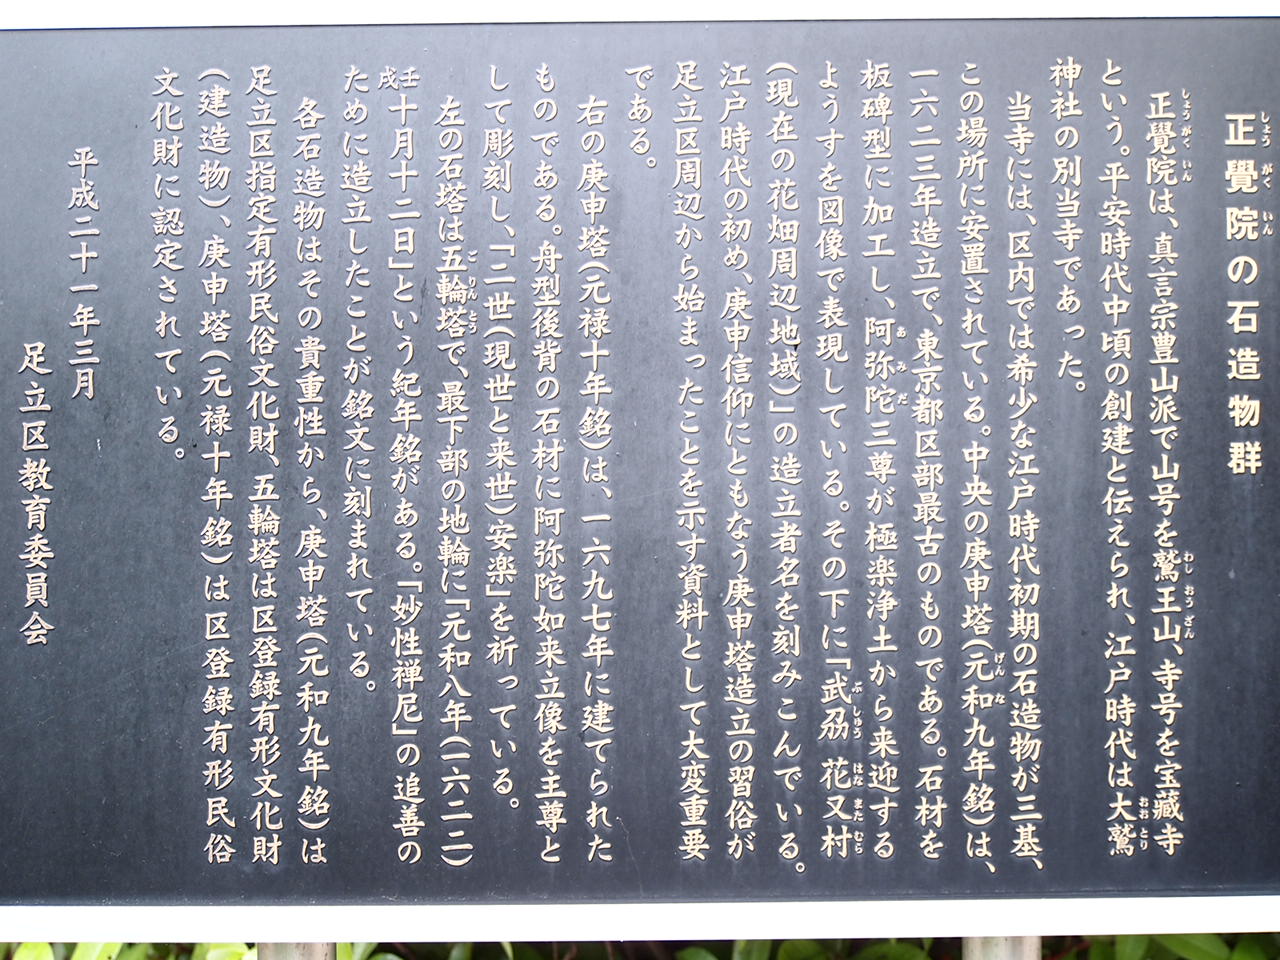 正覺院の石造物群
正覺院は、真言宗豊山派で山号を鷲王山、寺号を宝藏寺
という。平安時代中頃の創建と伝えられ、江戸時代は大鷲
神社の別当寺であった。
当寺には、区内では希少な江戸時代初期の石造物が三基、
この場所に安置されている。中央の庚申塔(元和九年銘)は、
一六二三年造立で、東京都区部最古のものである。石材を
板碑型に加工し、阿弥陀三尊が極楽浄土から来迎する
ようすを図像で表現している。その下に「武刕 花又村
(現在の花畑周辺地域)」の造立者名を刻みこんでいる。
江戸時代の初め、庚申信仰にともなう庚申塔造立の習俗が
足立区周辺から始まったことを示す資料として大変重要
である。
右の庚申塔(元禄十年銘)は、一六九七年に建てられた
ものである。舟型後背の石材に阿弥陀如来立像を主尊と
して彫刻し、「二世(現世と来世)安楽」を祈っている。
左の石塔は五輪塔で、最下部の地輪に「元和八年(一六二二)
壬戌十月十二日」という紀年銘がある。「妙性禅尼」の追善の
ために造立したことが銘文に刻まれている。
各石造物はその貴重性から、庚申塔(元和九年銘)は
足立区指定有形民俗文化財、五輪塔は区登録有形文化財
(建造物)、庚申塔(元禄十年銘)は区登録有形民俗
文化財に認定されている。
平成二十一年三月
足立区教育委員会